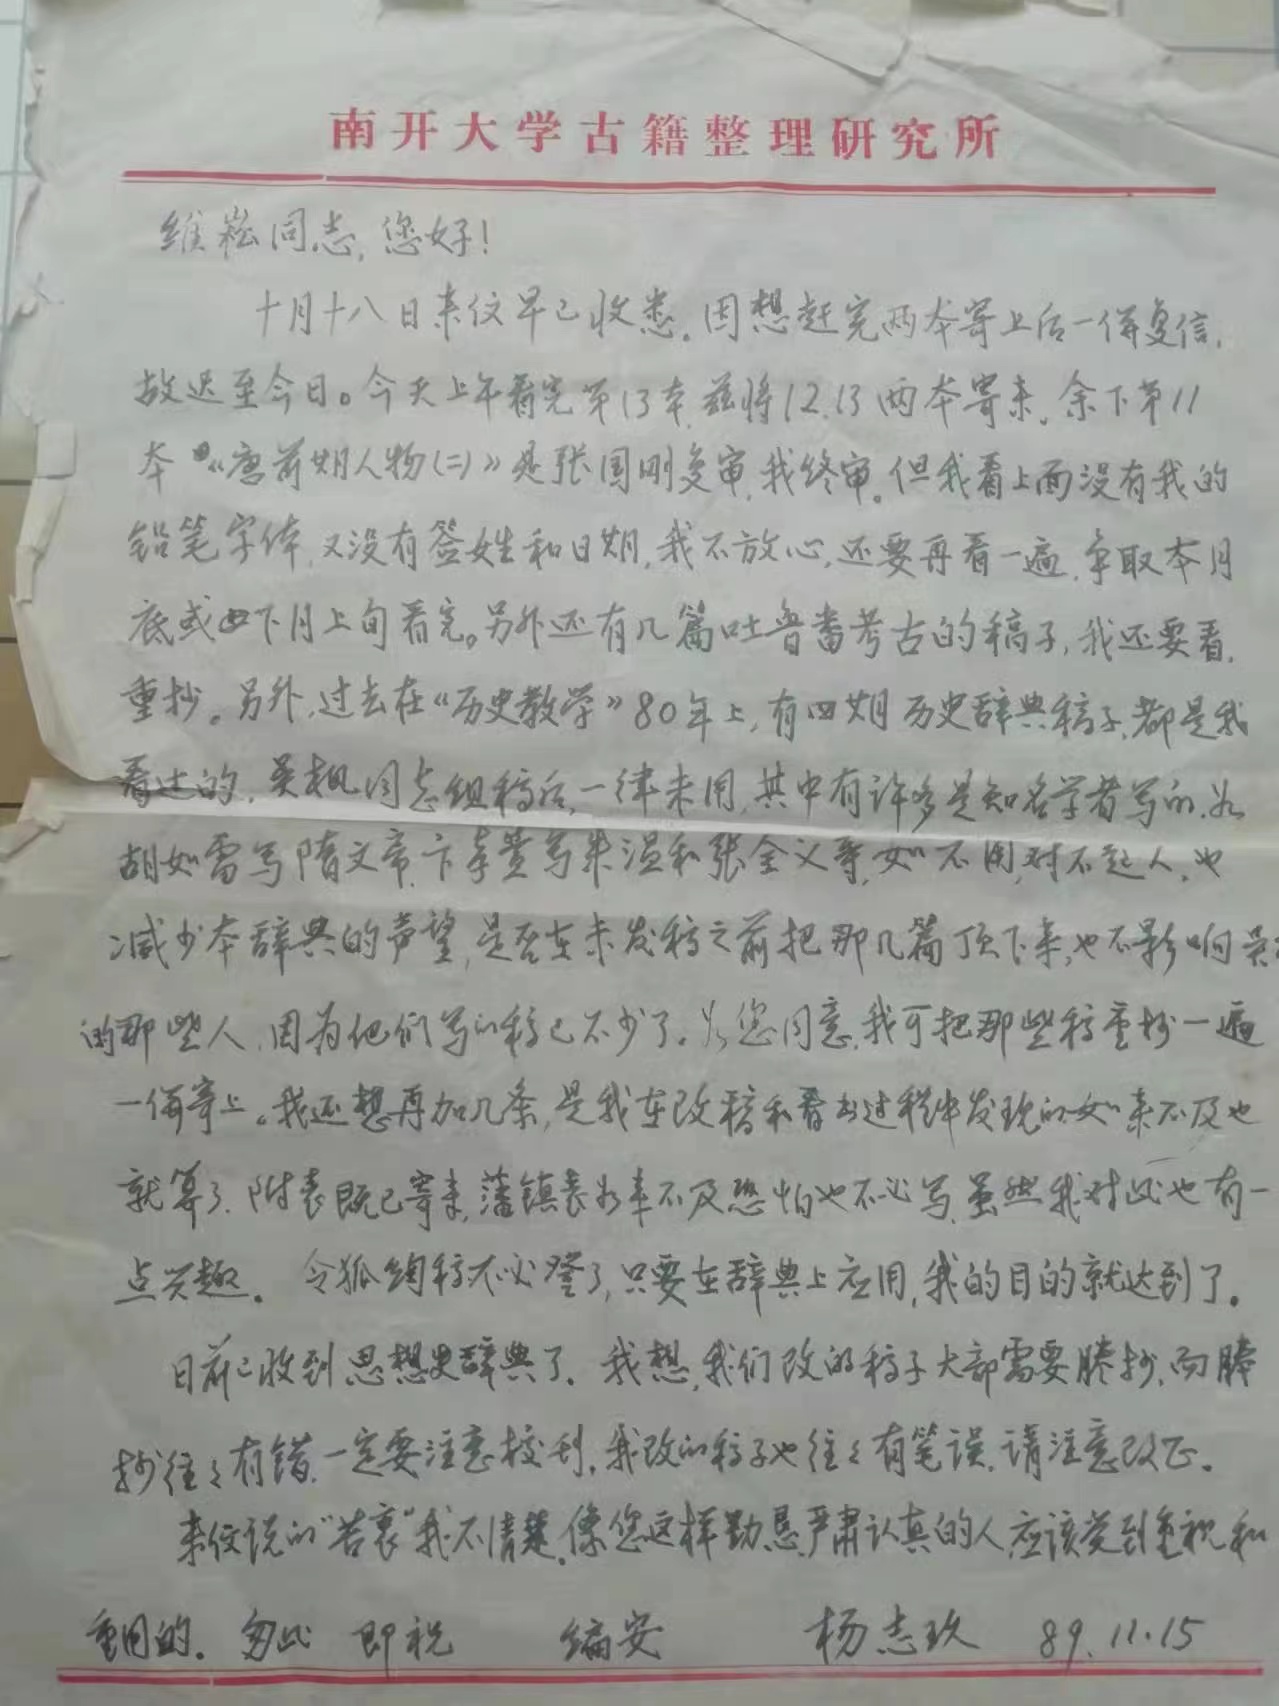 南开大学古籍整理研究所
维崧同志,您好!
十月十八日来仪早已收悉。因想赶完两本寄上后一併复信,
故迟至今日。今天上午看完第13本,兹将12.13两本寄来,余下第11
本《唐前期人物(二)》是张国刚复审,我终审。但我看上面没有我的
铅笔字体,又没有签姓和日期,我不放心,还要再看一遍,争取本月
底或下月上旬看完。另外还有几篇吐鲁番考古的稿子,我还要看,
重抄。另外,过去在《历史教学》80年上,有四期历史辞典稿子,都是我
看过的,吴枫同志组稿后,一律未用,其中有许多是知名学者写的,如
胡如雷写隋文帝,卞孝萱写朱温和张全义等,如不用,对不起人,也
减少本辞典的声望,是否在未发稿之前把那几篇顶下来,也不影响吴
的那些人,因为他们写的稿已不少了。如您同意,我可把那些稿重抄一遍
一併寄上。我还想再加几条,是我在改稿和看书过程中发现的,如来不及也
就算了。附表既已寄来,藩镇表如来不及恐怕也不必写,虽然我对此也有一
点兴趣。 令狐绹稿不必登了,只要在辞典上应用,我的目的就达到了。
日前已收到思想史辞典了。我想,我们改的稿子大部需要腾抄,而腾
抄往々有错,一定要注意校刊,我改的稿子也往々有笔误,请注意改正。
来仪说的“苦衷”我不清楚。像您这样勤恳严肃认真的人,应该受到重视和
重用的。匆此 即祝 编安 杨志玖 89.11.15